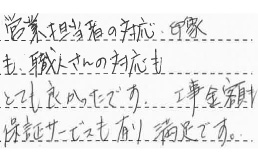 営業担当者の対応、印象
も、職人さんの対応も
とても良かったです。工事金額も
保証サービスも有り満足です。